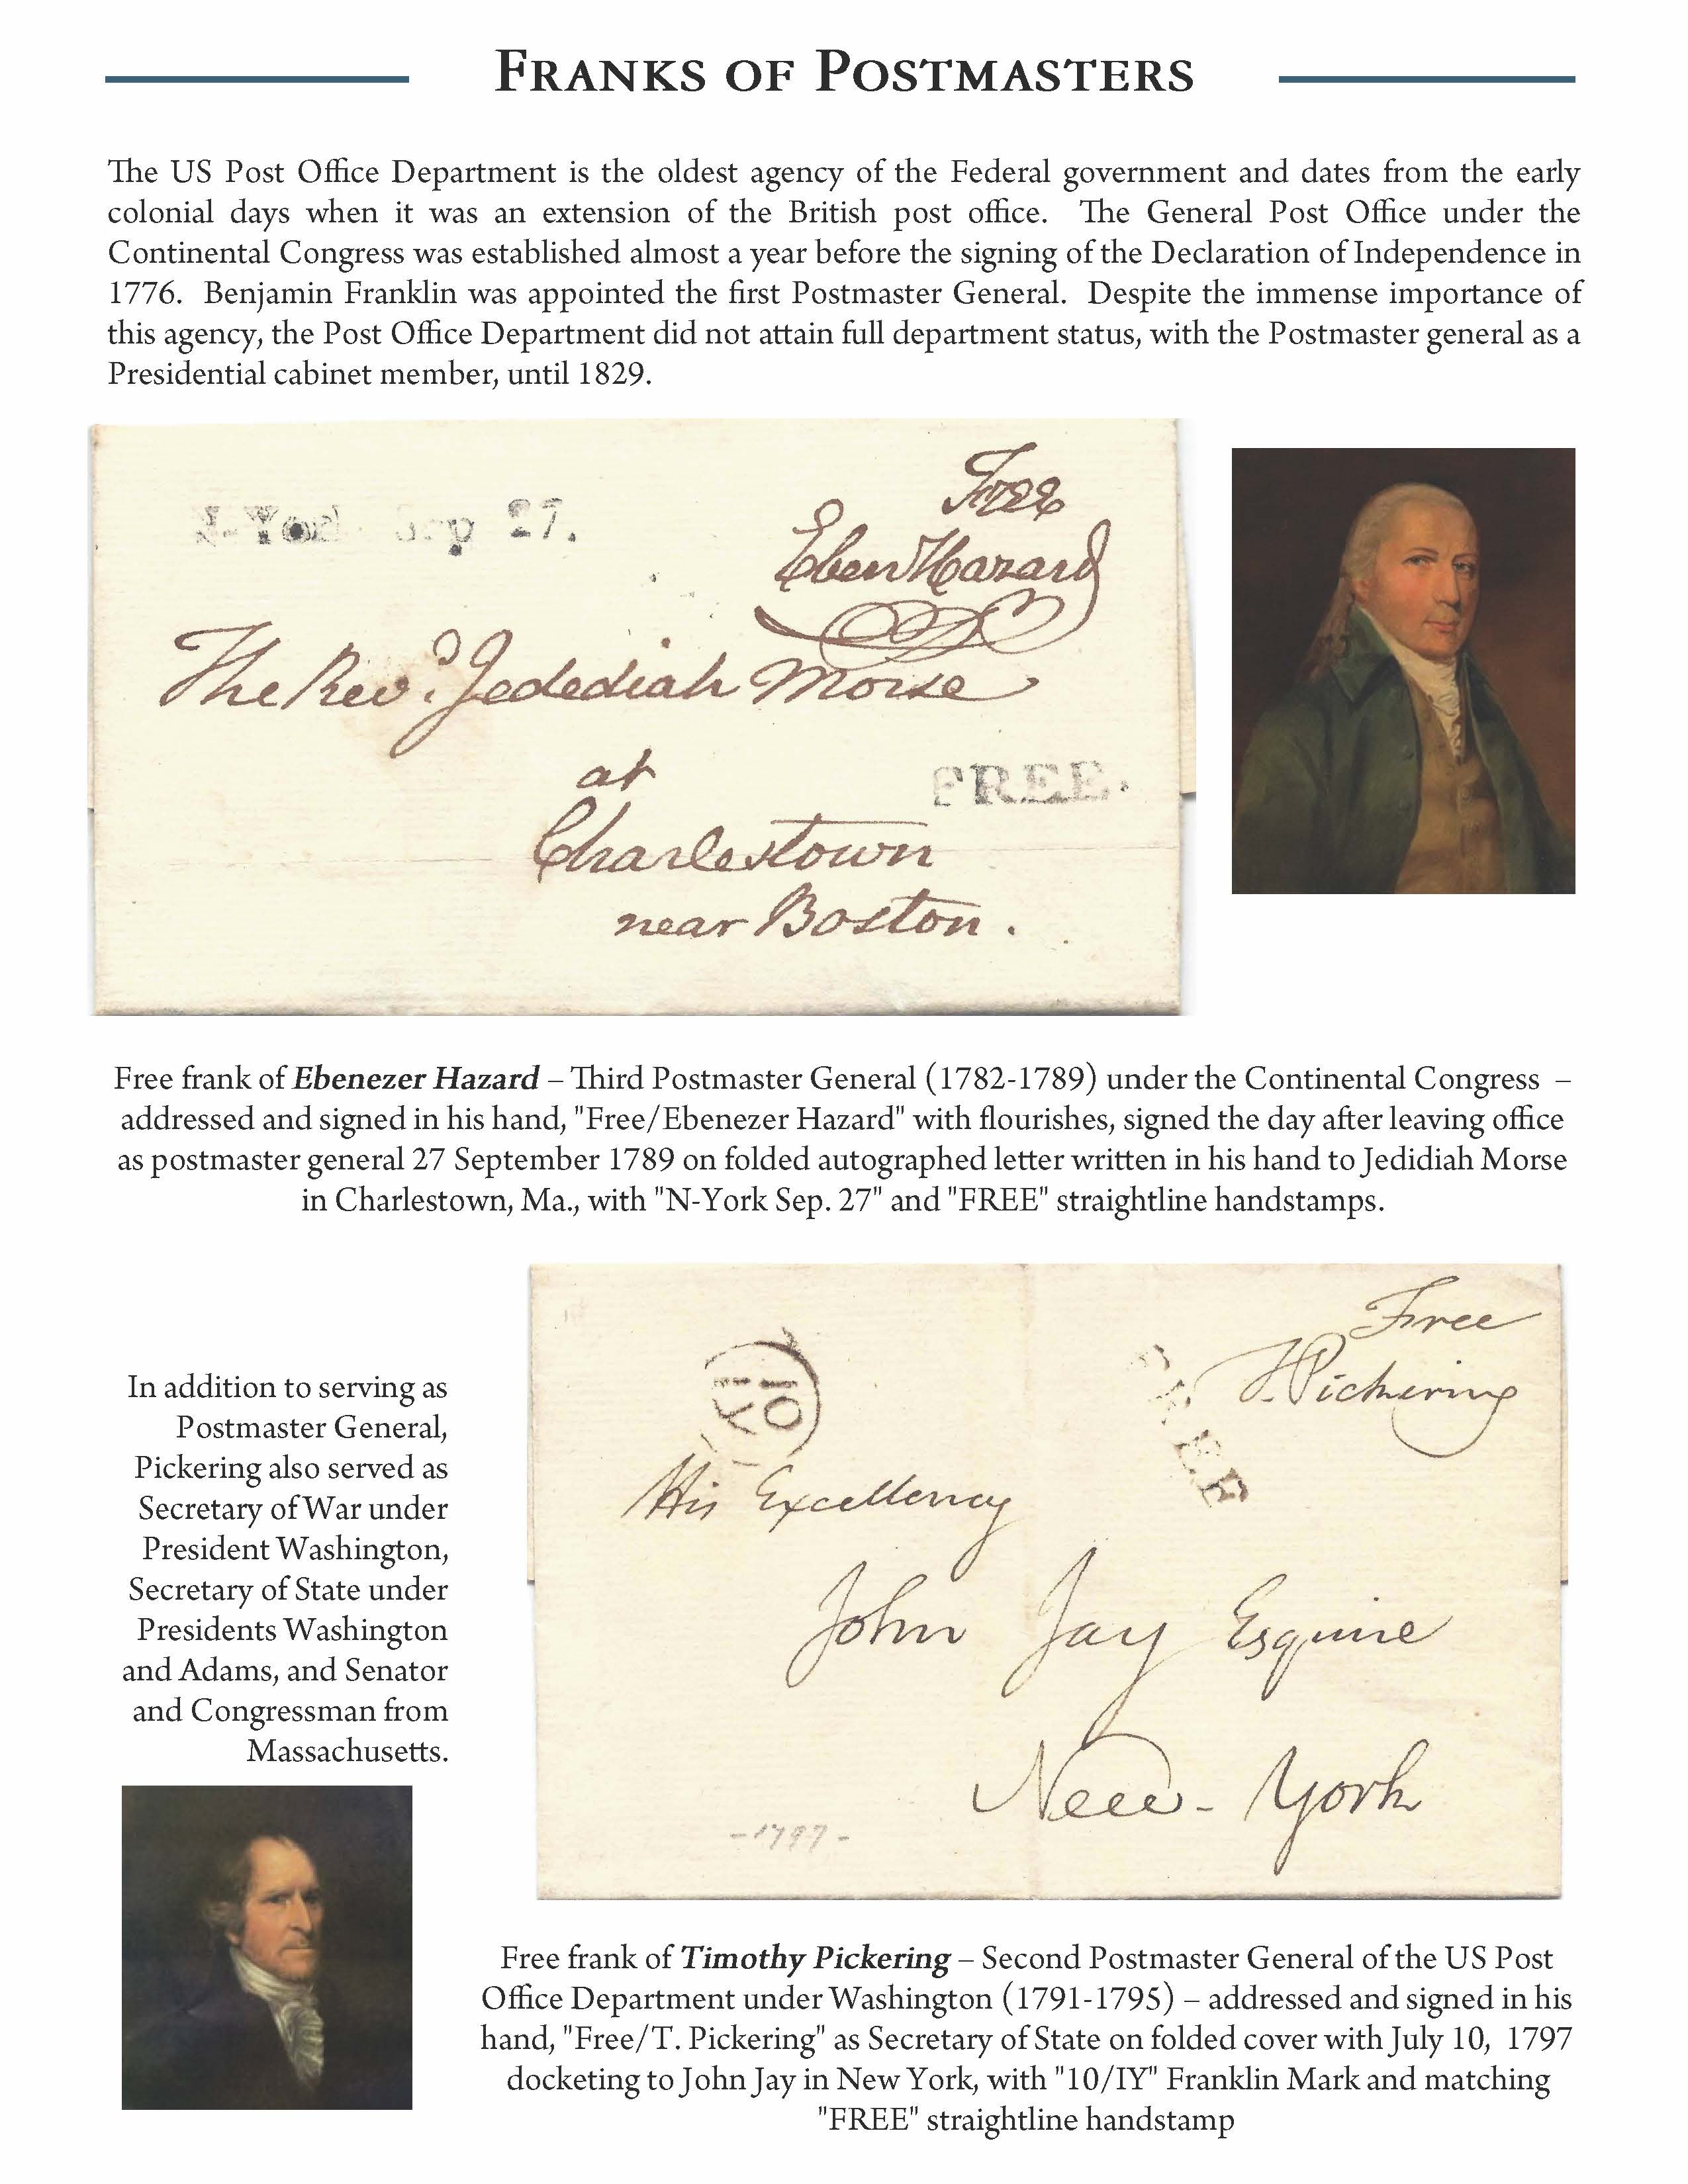 FRANKS OF POSTMASTERS
The US Post Office Department is the oldest agency of the Federal government and dates from the early
colonial days when it was an extension of the British post office. The General Post Office under the
Continental Congress was established almost a year before the signing of the Declaration of Independence in
1776. Benjamin Franklin was appointed the first Postmaster General. Despite the immense importance of
this agency, the Post Office Department did not attain full department status, with the Postmaster general as a
Presidential cabinet member, until 1829.
Free
N-York Sep 27.
Eben Hazard
The Revd. Jedediah Morse
at
FREE.
Charlestown
near Boston.
Free frank of Ebenezer Hazard – Third Postmaster General (1782-1789) under the Continental Congress –
addressed and signed in his hand, "Free/Ebenezer Hazard" with flourishes, signed the day after leaving office
as postmaster general 27 September 1789 on folded autographed letter written in his hand to Jedidiah Morse
in Charlestown, Ma., with "N-York Sep. 27" and "FREE" straightline handstamps.
In addition to serving as
Postmaster General,
Pickering also served as
Secretary of War under
President Washington,
Secretary of State under
Presidents Washington
and Adams, and Senator
and Congressman from
Massachusetts.
Free
T. Pickering
10
IY
FREE
His Excellency
John Jay Esquire
New-York
-1797-
Free frank of Timothy Pickering – Second Postmaster General of the US Post
Office Department under Washington (1791-1795) – addressed and signed in his
hand, "Free/T. Pickering" as Secretary of State on folded cover with July 10, 1797
docketing to John Jay in New York, with "10/IY" Franklin Mark and matching
"FREE" straightline handstamp